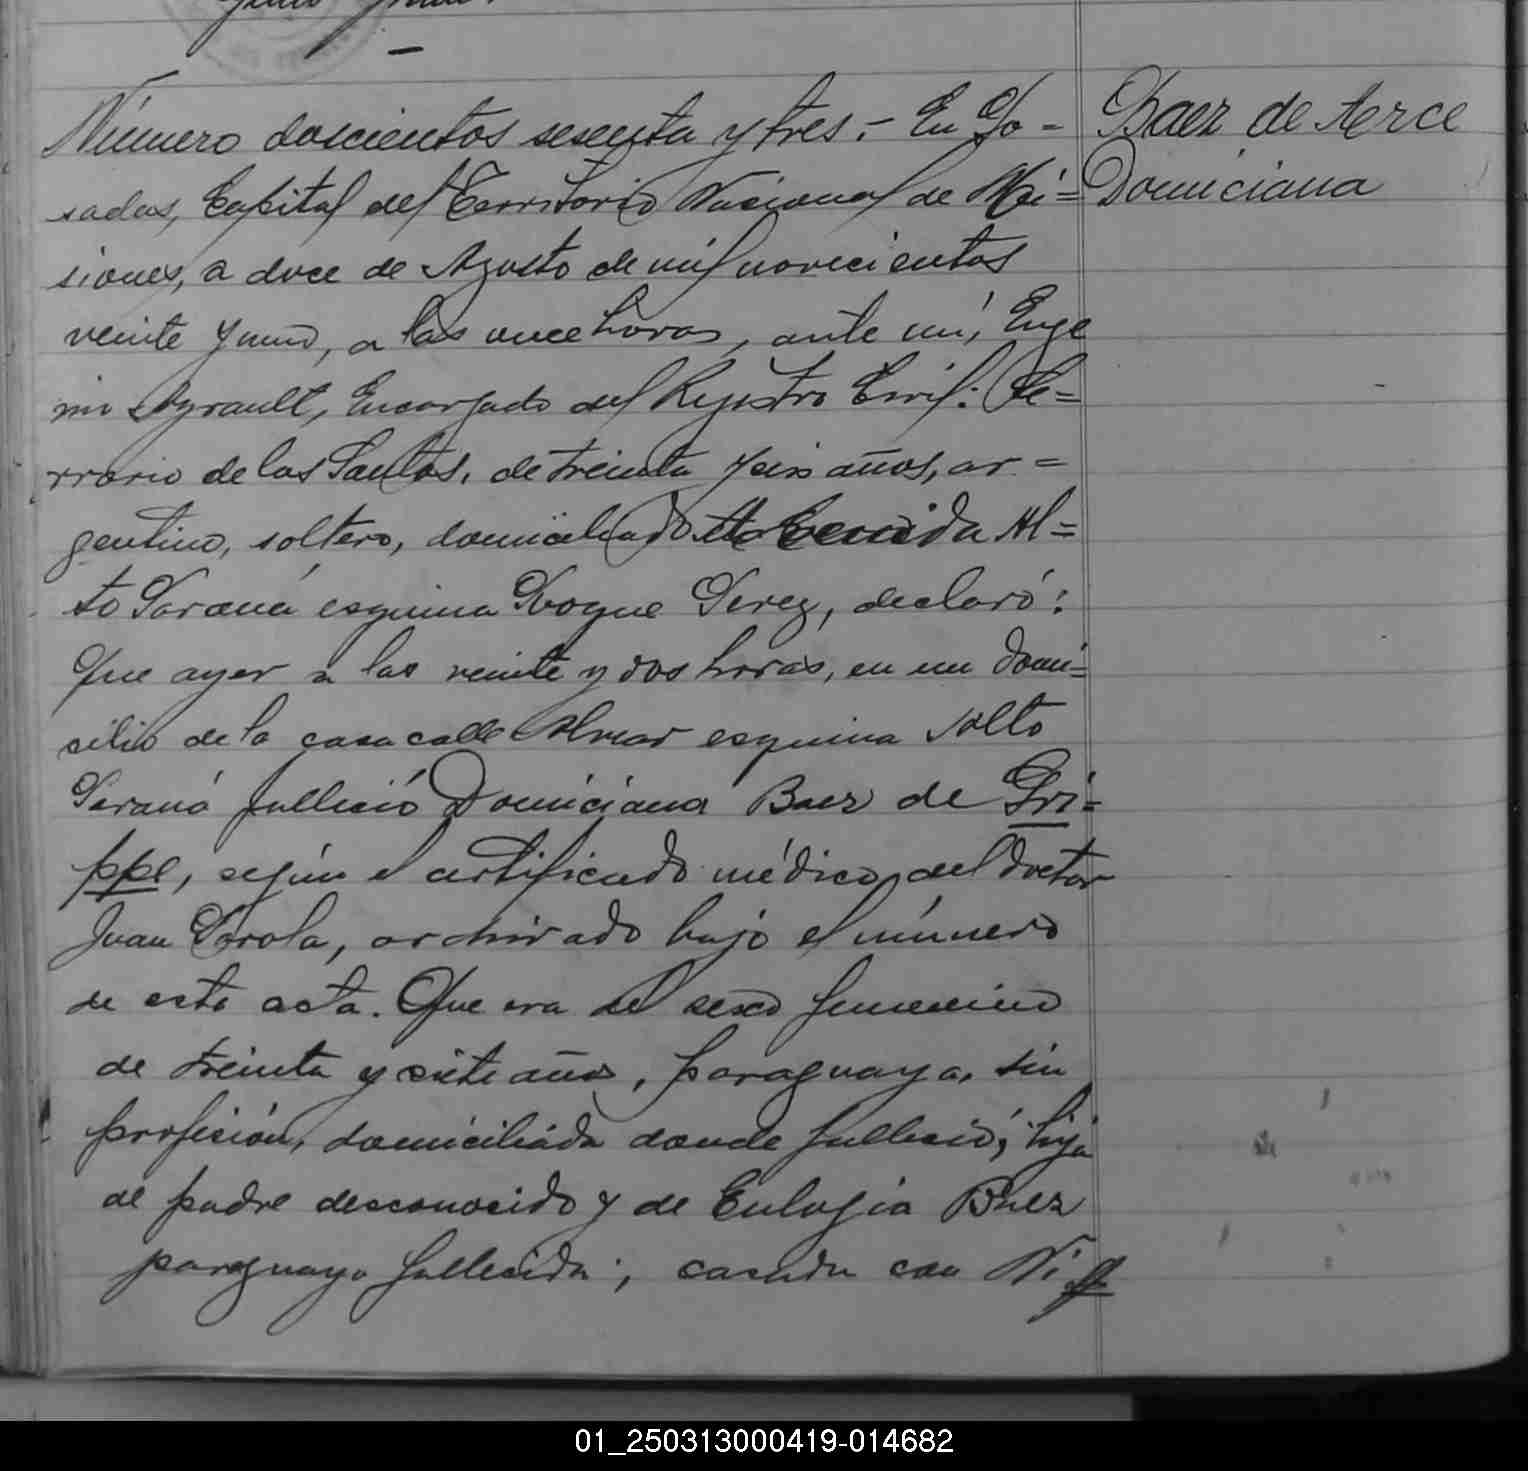 Número doscientos sesenta y tres.- En Po=
sadas, Capital del Territorio Nacional de Mi=
siones, a doce de Agosto de mil novecientos
veinte y uno, a las once horas, ante mí, Euge
nio Ayrault, Encargado del Registro Civil: Be=
rrario de los Santos, de treinta y seis años, ar=
gentino, soltero, domiciliado Avenida Al=
to Paraná esquina Roque Perez, declaró:
Que ayer a las veinte y dos horas, en un domi=
cilio de la casa calle Alvear esquina Alto
Paraná falleció Domiciana Baez de Gri=
ppe, según el certificado médico del doctor
Juan Parola, archivado bajo el número
de esta acta. Que era del sexo femenino
de treinta y siete años, paraguaya, sin
profesión, domiciliada donde falleció; hija
de padre desconocido y de Eulogia Baez
paraguaya fallecida; casada con Ni
Baez de Aerce
Domiciana
01_250313000419-014682